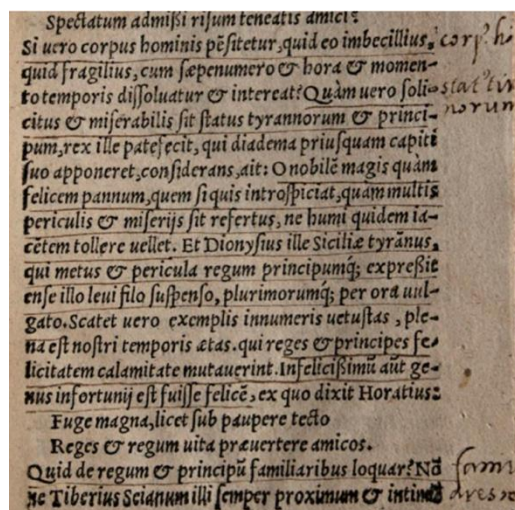 Spectatum admißi risum teneatis amici?
Si uero corpus hominis pẽsitetur, quid eo imbecillius,
quid fragilius, cum sæpenumero & hora & momen-
to temporis dissoluatur & intereat? Quàm uero soli-
citus & miserabilis sit status tyrannorum & princi-
pum, rex ille patefecit, qui diadema priusquam capiti
suo apponeret, considerans, ait: O nobilẽ magis quàm
felicem pannum, quem si quis introspiciat, quàm multis
periculis & miserijs sit refertus, ne humi quidem ia-
cẽtem tollere uellet. Et Dionysius ille Siciliæ tyrãnus,
qui metus & pericula regum principumq́; expreßit
ense illo leui filo suspenso, plurimorumq́; per ora uul-
gato. Scatet uero exemplis innumeris uetustas, ple-
na est nostri temporis ætas. qui reges & principes fe-
licitatem calamitate mutauerint. Infelicißimũ aũt ge-
nus infortunij est fuisse felicẽ, ex quo dixit Horatius:
Fuge magna, licet sub paupere tecto
Reges & regum uita præuertere amicos.
Quid de regum & principũ familiaribus loquar? Nõ
ne Tiberius Seianum illi semper proximum & intimũ
corp. h
stat' tir
norum
fami